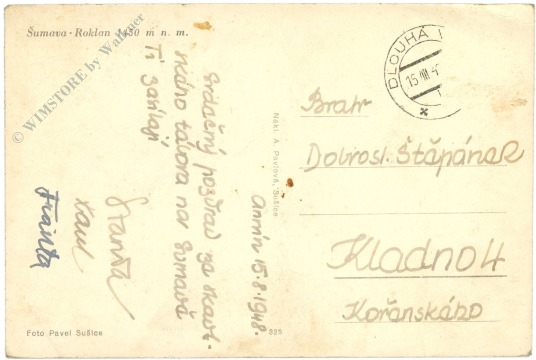 Šumava - Roklan 1450 m n. m.
© WIMSTORE by Wallner
Annín 15.8.1948.
Srdečný pozdrav ze skaut-
ského tábora na Šumavě
Ti zasílají
Standa
Karel
Franta
Nakl. A. Pavlová, Sušice
DLOUHÁ
15.VIII.4
Bratr
Dobrosl. Štěpánek
Kladno 4
Kořenského
Foto Pavel Sušice
325